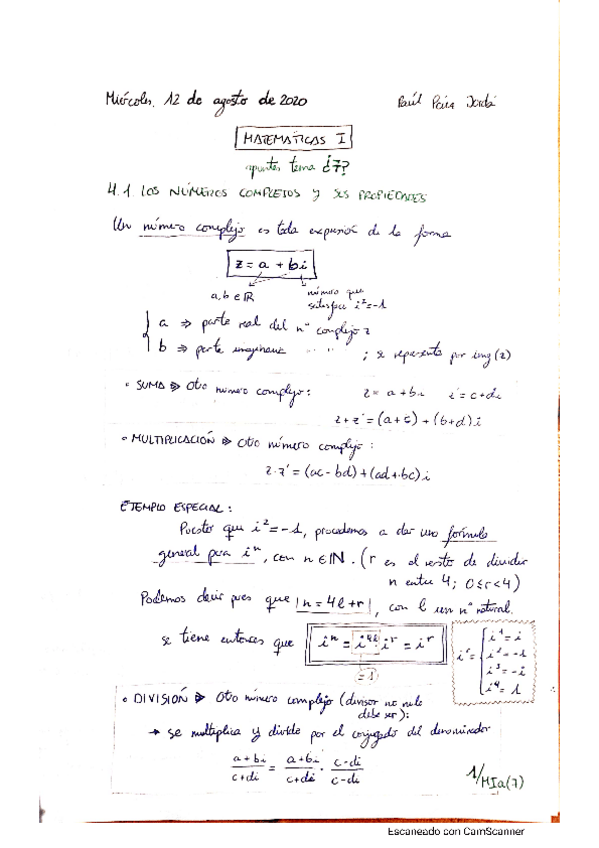 Miércoles, 12 de agosto de 2020
MATEMÁTICAS I
apuntes tema ¿7?
4.1. LOS NÚMEROS COMPLEJOS y SUS PROPIEDADES
Un número complejo es toda expresión de la forma
z = a + bi
a, b ∈ ℝ
número que
satisface i² = -1
a ⇒ parte real del nº complejo z
b ⇒ parte imaginaria " " " ; se representa por img(z)
• SUMA ⇒ Otro número complejo: z = a + bi z' = c + di
z + z' = (a+c) + (b+d)i
• MULTIPLICACIÓN ⇒ Otro número complejo:
z·z' = (ac - bd) + (ad + bc)i
EJEMPLO ESPECIAL:
Puesto que i² = -1, procedemos a dar una fórmula
general para iⁿ, con n ∈ ℕ. (r es el resto de dividir
n entre 4; 0 ≤ r < 4)
Podemos decir pues que n = 4l + r, con l un nº natural.
se tiene entonces que iⁿ = i⁴ˡ · iʳ = iʳ
= 1
iʳ =
i¹ = i
i² = -1
i³ = -i
i⁴ = 1
• DIVISIÓN ⇒ Otro número complejo (divisor no nulo
debe ser):
→ se multiplica y divide por el conjugado del denominador
(a+bi)/(c+di) = (a+bi)/(c+di) · (c-di)/(c-di)
1/MIa(7)
Escaneado con CamScanner